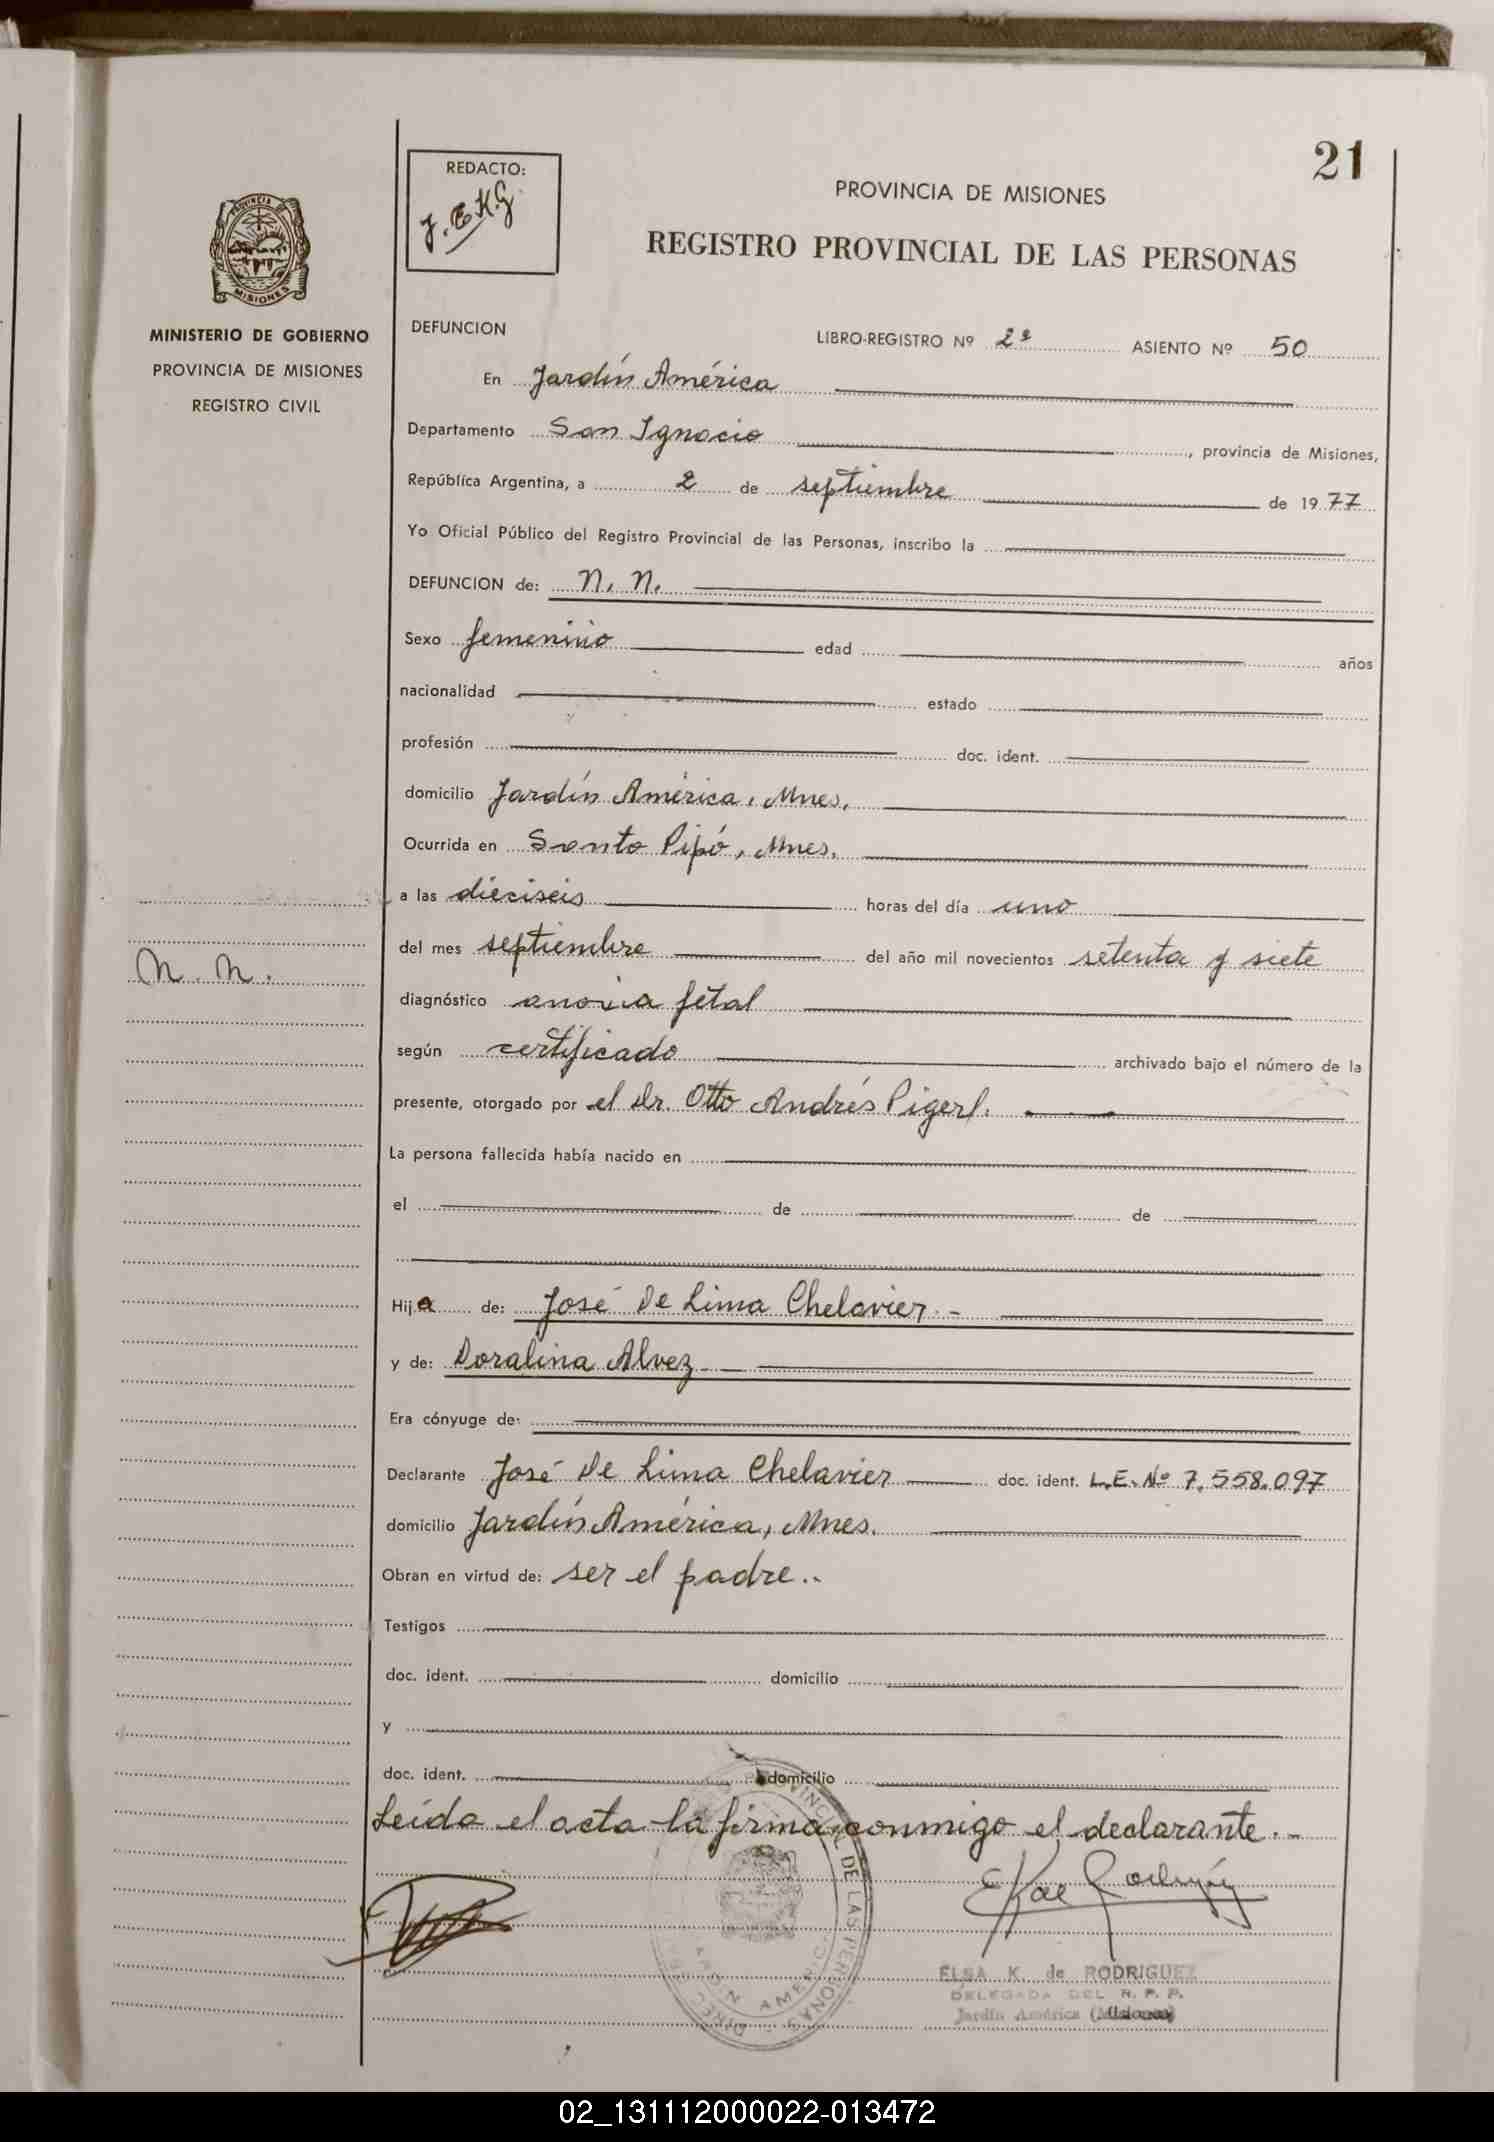 21
REDACTO:
J. E. K. G.
PROVINCIA DE MISIONES
REGISTRO PROVINCIAL DE LAS PERSONAS
PROVINCIA DE
MISIONES
MINISTERIO DE GOBIERNO
PROVINCIA DE MISIONES
REGISTRO CIVIL
DEFUNCION LIBRO-REGISTRO Nº 2º ASIENTO Nº 50
En Jardín América
Departamento San Ignacio, provincia de Misiones,
República Argentina, a 2 de septiembre de 1977
Yo Oficial Público del Registro Provincial de las Personas, inscribo la
DEFUNCION de: N. N.
Sexo femenino edad años
nacionalidad estado
profesión doc. ident.
domicilio Jardín América, Mnes.
Ocurrida en Santo Pipó, Mnes.
a las dieciseis horas del día uno
del mes septiembre del año mil novecientos setenta y siete
N. N.
diagnóstico anoxia fetal
según certificado archivado bajo el número de la
presente, otorgado por el Dr. Otto Andrés Pigerl.
La persona fallecida había nacido en
el de de
Hija de: José De Lima Chelavier.-
y de: Doralina Alvez
Era cónyuge de:
Declarante José De Lima Chelavier doc. ident. L.E. Nº 7.558.097
domicilio Jardín América, Mnes.
Obran en virtud de: ser el padre..
Testigos
doc. ident. domicilio
y
doc. ident. domicilio
Leída el acta la firma conmigo el declarante.-
ELSA K. de RODRIGUEZ
DELEGADA DEL R. P. P.
Jardín América (Misiones)
02_131112000022-013472